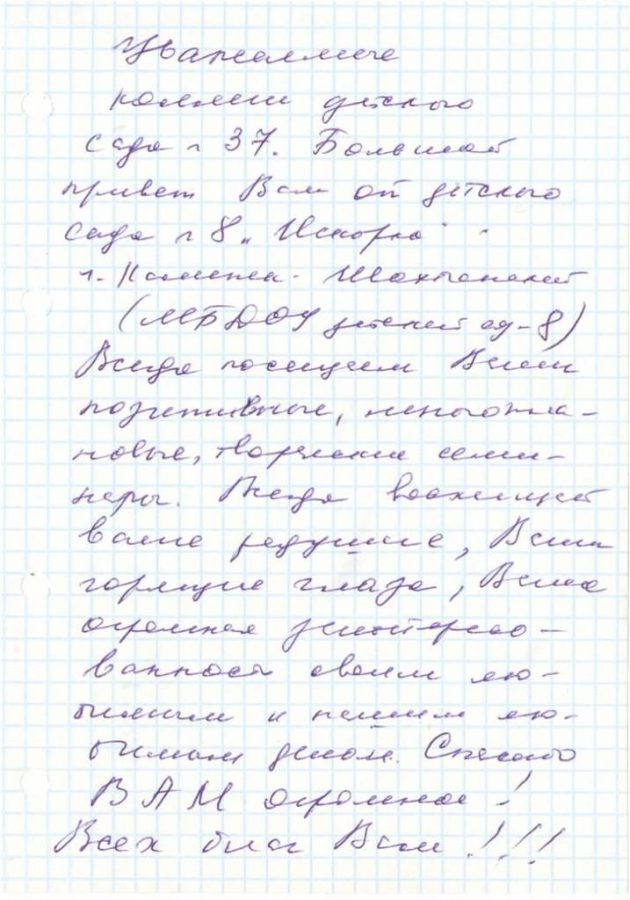 Уважаемые
коллеги детского
сада № 37. Большой
привет Вам от детского
сада № 8 „Искорка"
г. Каменск-Шахтинский
(МБДОУ детский сад-8)
Всегда посещаем Ваши
позитивные,
новые, творческие семи-
нары. Всегда восхищает
ваше радушие, Ваши
горящие глаза, Ваша
огромная заинтересо-
ванность своим лю-
бимым и нашим лю-
бимым делом. Спасибо
ВАМ огромное!
Всех благ Вам!!!